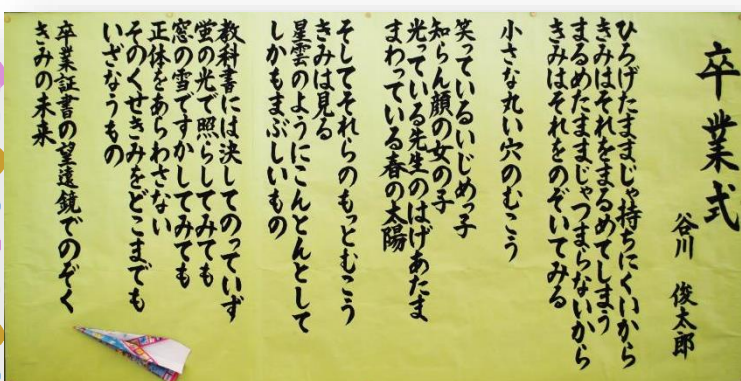 卒業式
谷川 俊太郎
ひろげたままじゃ持ちにくいから
きみはそれをまるめてしまう
まるめたままじゃつまらないから
きみはそれをのぞいてみる
小さな丸い穴のむこう
笑っているいじめっ子
知らん顔の女の子
光っている先生のはげあたま
まわっている春の太陽
そしてそれらのもっとむこう
きみは見る
星雲のようにこんとんとして
しかもまぶしいもの
教科書には決してのっていず
蛍の光で照らしてみても
窓の雪ですかしてみても
正体をあらわさない
そのくせきみをどこまでも
いざなうもの
卒業証書の望遠鏡でのぞく
きみの未来